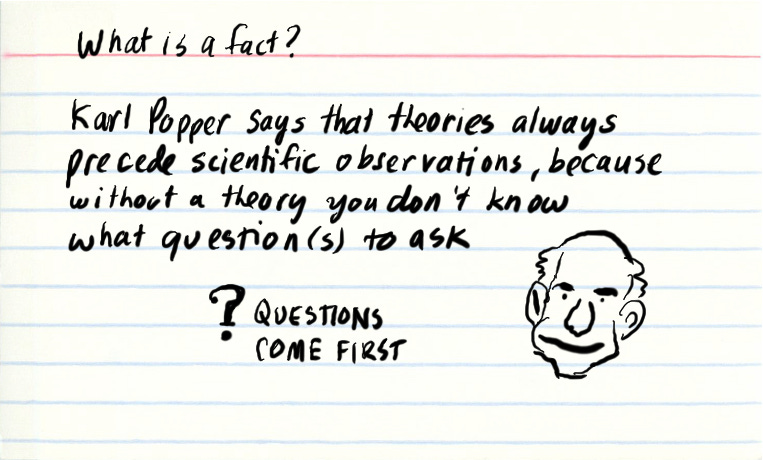 What is a fact?
Karl Popper says that theories always
precede scientific observations, because
without a theory you don't know
what question(s) to ask
? QUESTIONS
COME FIRST